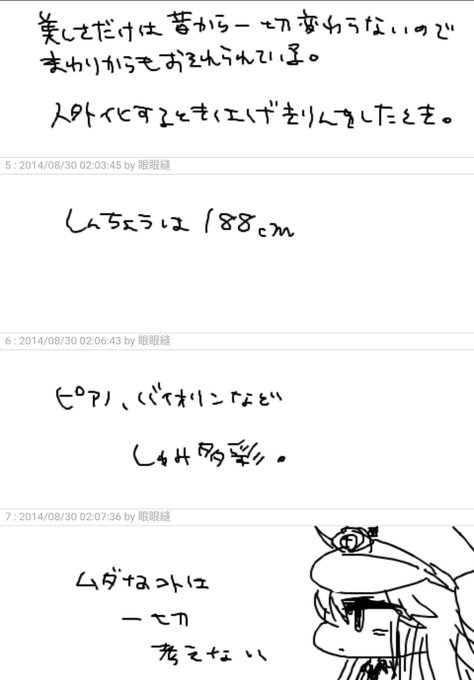 美しさだけは昔から一切変わらないので
まわりからもおそれられている。
人外化するときはエネルギーぎりんをしたとき。
5 : 2014/08/30 02:03:45 by 眼眼縫
しんちょうは188cm
6 : 2014/08/30 02:06:43 by 眼眼縫
ピアノ、バイオリンなどい
しゅみ多彩。
7 : 2014/08/30 02:07:36 by 眼眼縫
ムダなコトは
一切
考えない